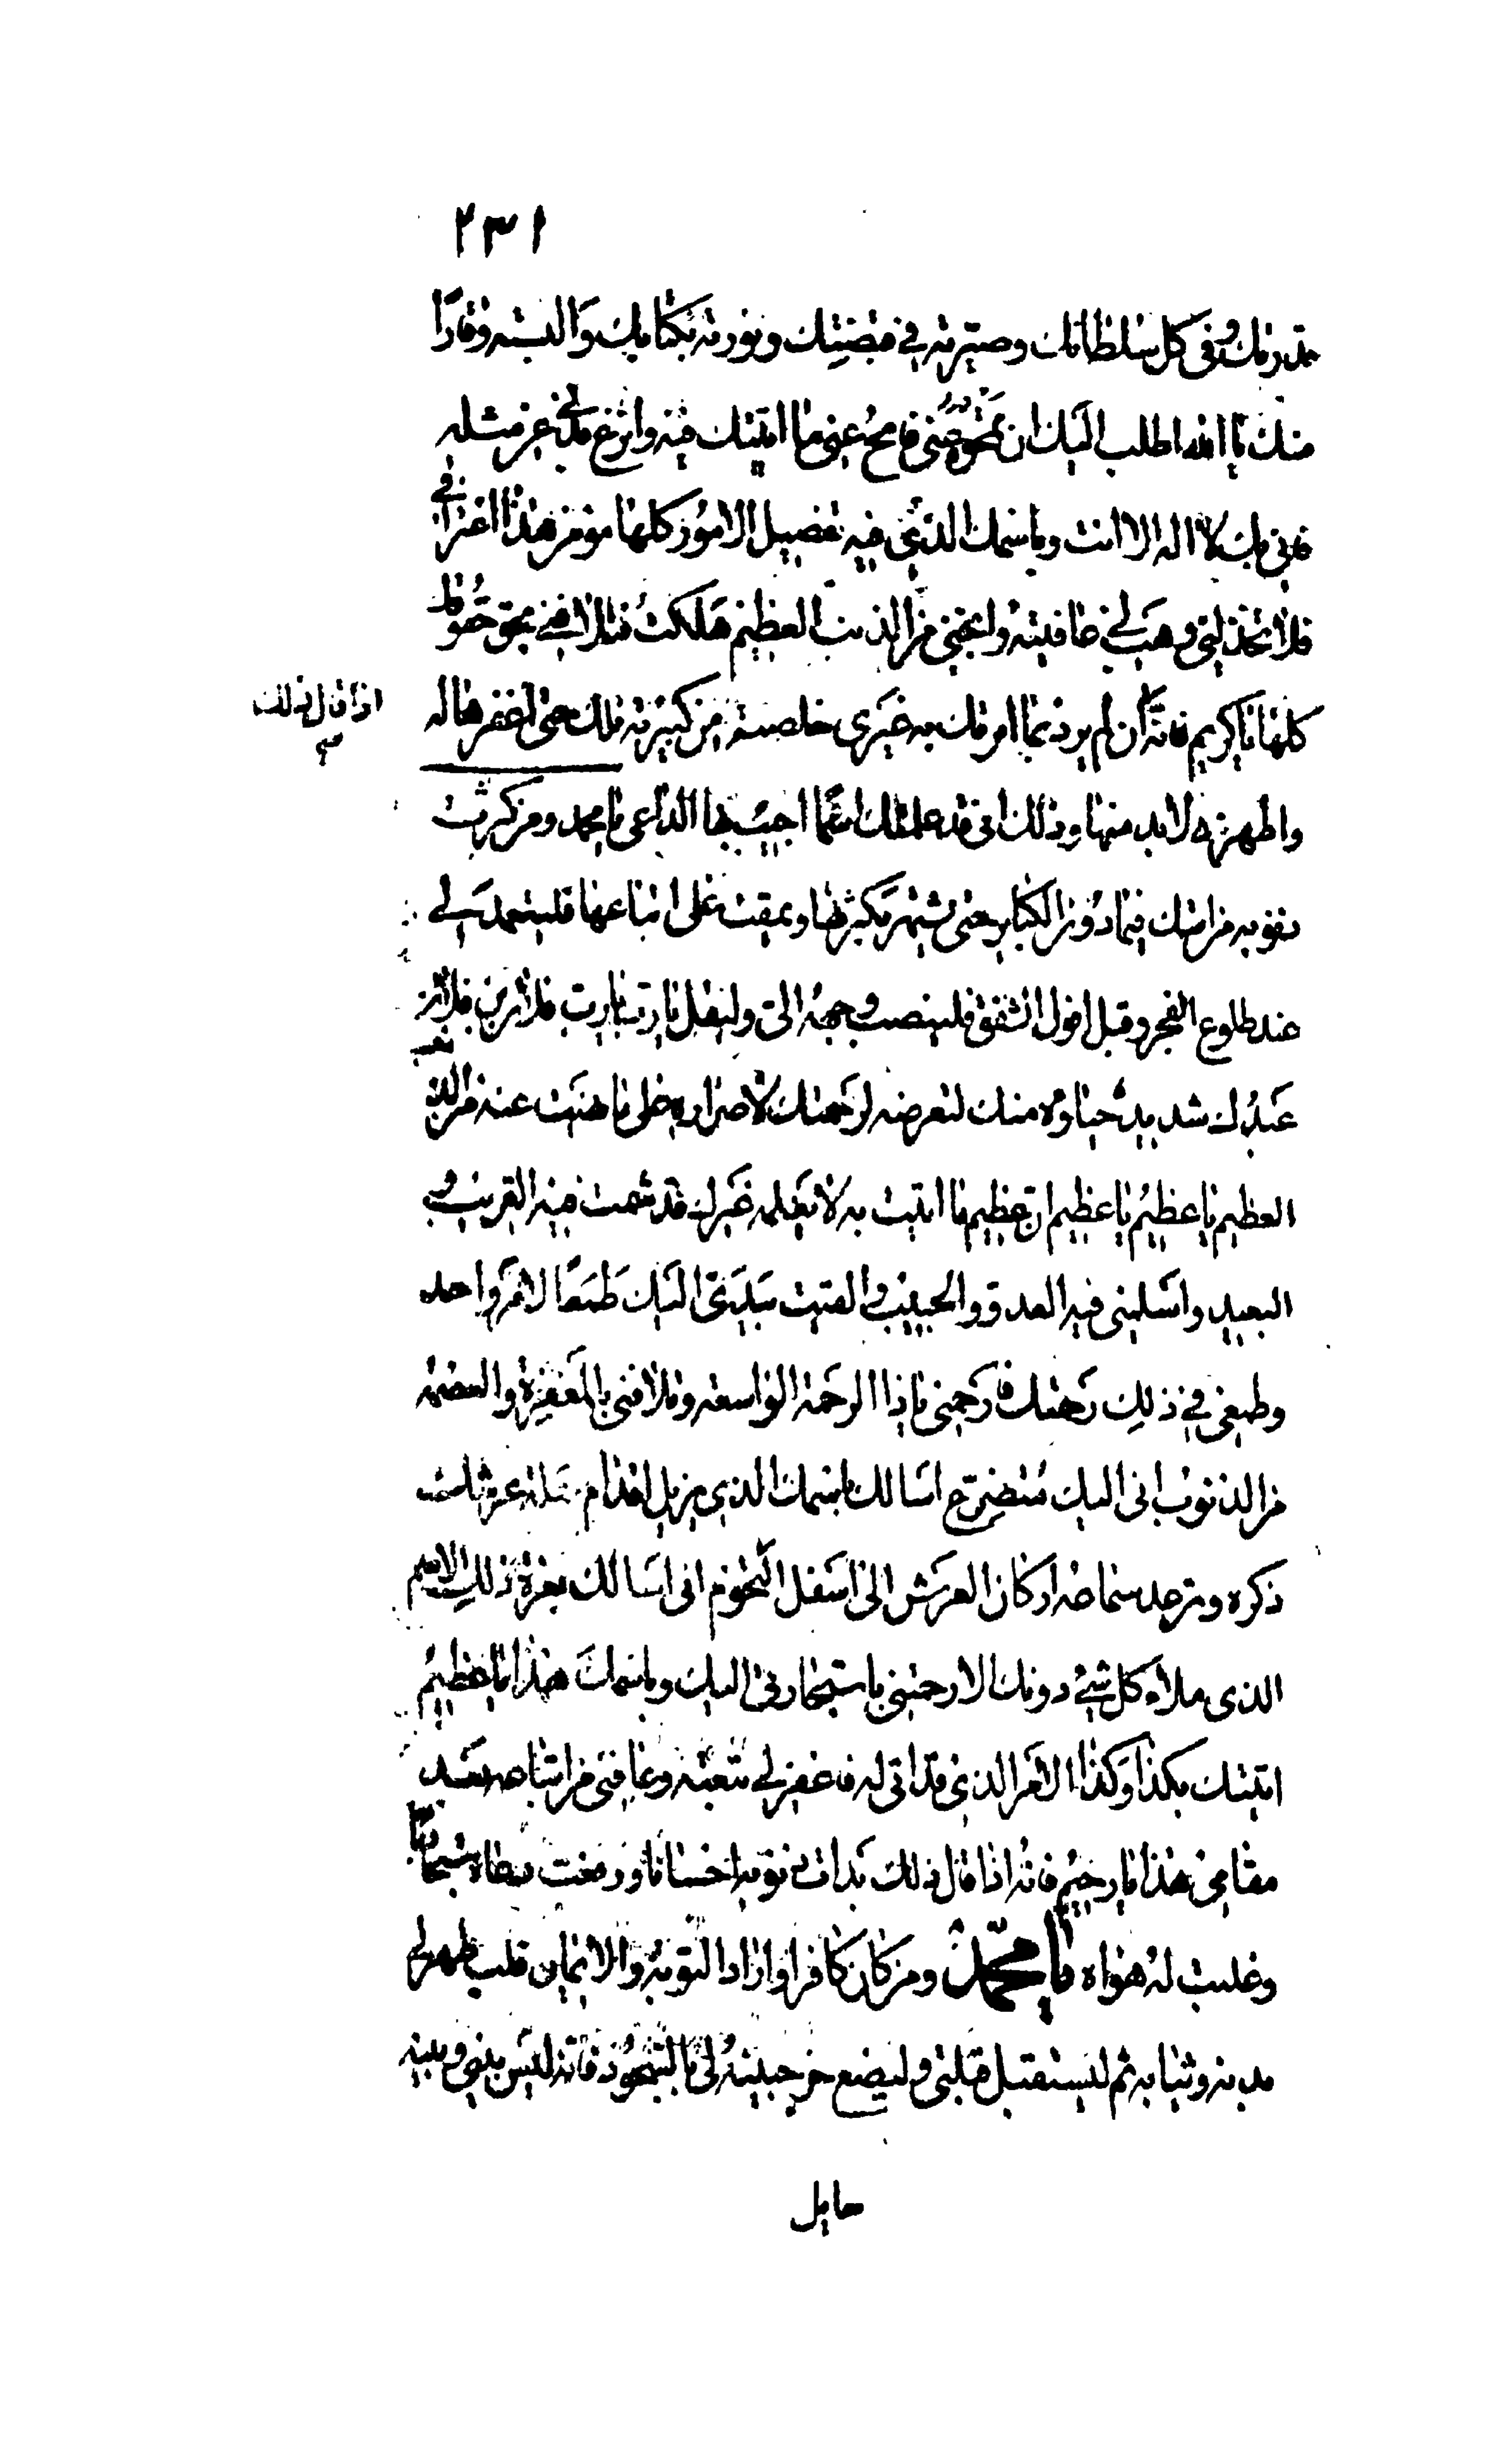 ٢٣١
بقدرتك وفى كل سلطانك وصيرته في قبضتك ونورته بكتابك والبسته وقارا
منك يا الله اطلب اليك ان تمحوه عني فامح عني ما اتيتك فيه وانزع قلبي عن مثله
فاني بك لا اله الا انت وباسمك الذي فيه تفصيل الامور كلها مؤمن هذا اعترافي
فلا تخذلني وهب لي عافيته وانجني من الذنب العظيم هلكت فتلافني بحق حقوقك
كلها يا كريم فانه ان لم يرد بما امرتك به غيري خلصته من كبيرته تلك حتى اغفرها له
اذا قال ذلك
صح
واطهره لابد منها وذلك اني قد علمتك اسما اجيب بها الداعي يا محمد ومن كثرت
ذنوبه من امتك فيما دون الكبائر حتى يشتهر بكثرتها ويمقت على اتباعها فليعتمد لي
عند طلوع الفجر وقبل افول الشفق فلينصب وجهه الي وليقل يا رب يا رب فلان بن فلان
عبدك شديد حياؤه منك لتعرضه لرحمتك لاصراره على ما نهيت عنه من الذنب
العظيم يا عظيم يا عظيم ان عظيم ما اتيت به لا يعلمه غيرك قد شمت فيه القريب و
البعيد واسلمني فيه العدو والحبيب والقيت بيدي اليك طمعا لامر واحد
وطمعي في ذلك رحمتك فارحمني يا ذا الرحمة الواسعة وتلافني بالمغفرة والعصمة
من الذنوب اني اليك متضرع اسالك باسمك الذي يزيل اقدام حملة عرشك
ذكره وترعد لسماعه اركان العرش الى اسفل التخوم اني اسالك بعزة ذلك الاسم
الذي ملاء كل شيء دونك الا رحمتني باستجارتي اليك وباسمك هذا يا عظيم
اتيتك بكذا وكذا الامر الذي قد اتى له فاغفر لي تبعته وعافني من اتباعه بعد
مقامي هذا يا رحيم فانه اذا قال ذلك بدلت ذنوبه احسانا ورفعت دعاه مستجابا
وغلبت له هواه يا محمد ومن كان كافرا واراد التوبة والايمان فليطهر لي
بدنه وثيابه ثم ليستقبل قبلتي وليضع حر جبينه لي بالسجود فانه ليس بيني وبينه
حايل